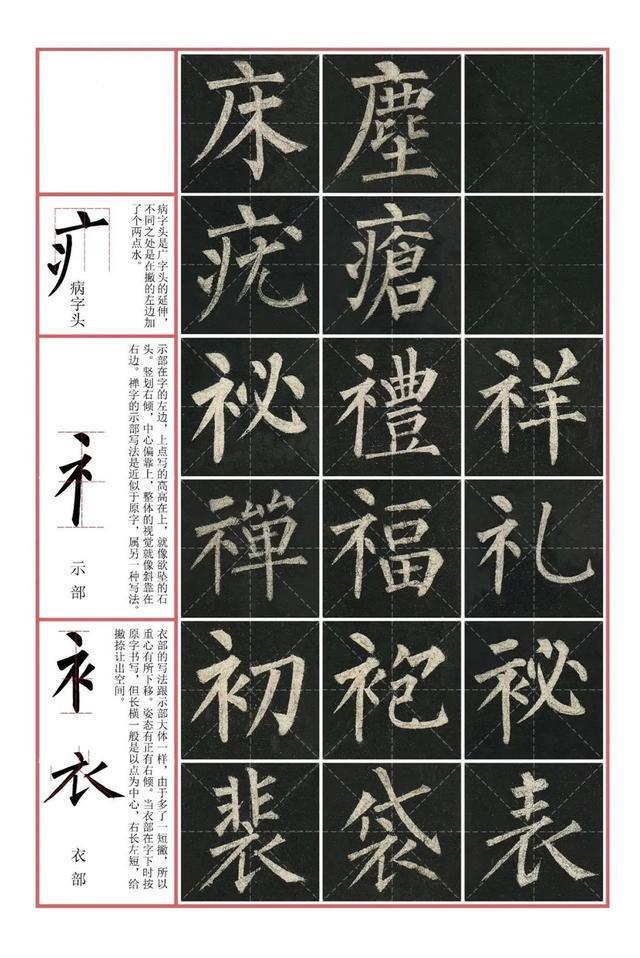 床 塵
疒
病字头
病字头是广字头的延伸，
不同之处是在撇的左边加
了个两点水。
疣 瘡
礻
示部
示部在字的左边，上点写的高高在上，就像欲坠的石
头。竖划右倾，中心偏靠上，整体的视觉就像斜靠在
右边。禅字的示部写法是近似于原字，属另一种写法。
祕 禮 祥
禪 福 礼
衤
衣
衣部
衣部的写法跟示部大体一样，由于多了一短撇，所以
重心有所下移。姿态有正有右倾。当衣部在字下时按
原字书写，但长横一般是以点为中心，右长左短，给
撇捺让出空间。
初 袍 袐
裴 袋 表